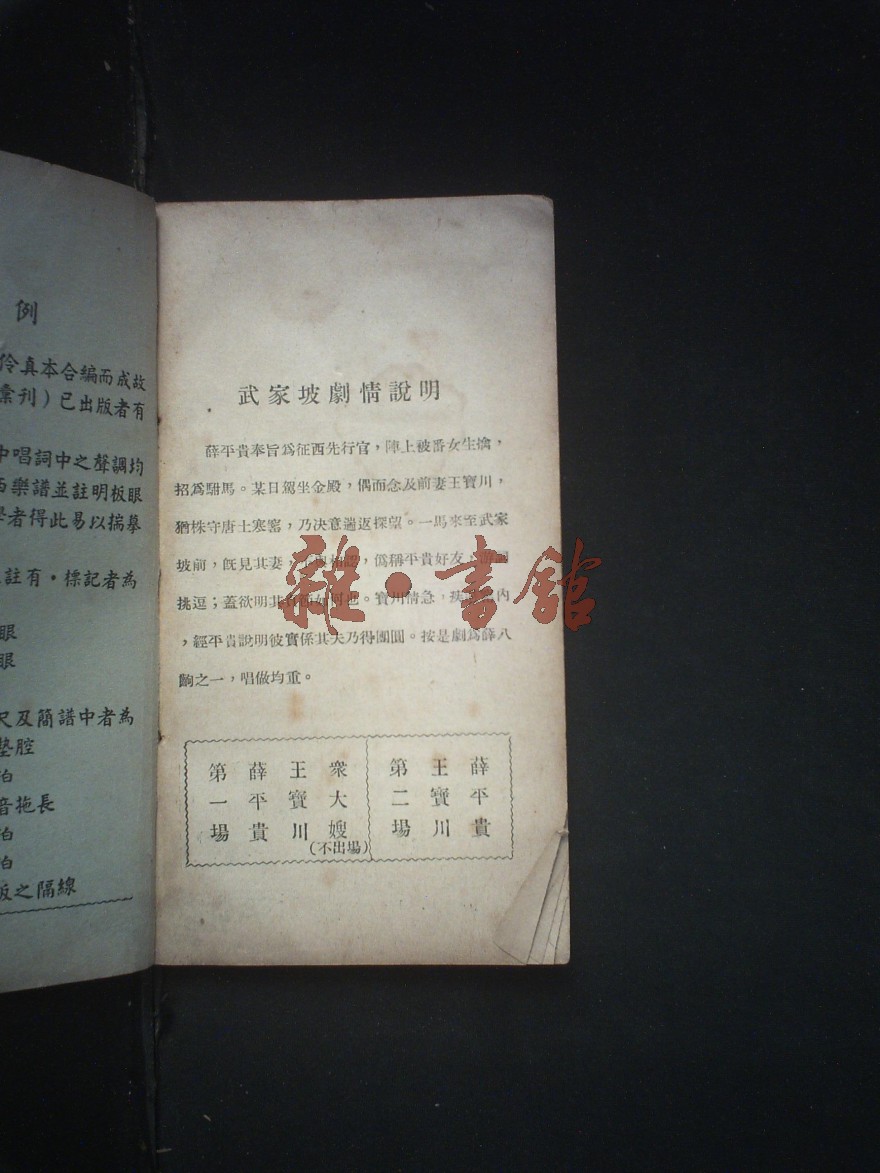 例
伶真本合編而成故
彙刊）已出版者有
中唱詞中之聲調均
西樂譜並註明板眼
學者得此易以揣摹
註有・標記者為
眼
眼
尺及簡譜中者為
墊腔
拍
音拖長
拍
拍
板之隔線
武家坡劇情說明
薛平貴奉旨爲征西先行官，陣上被番女生擒，
招爲駙馬。某日駕坐金殿，偶而念及前妻王寶川，
猶株守唐土寒窰，乃決意遄返探望。一馬來至武家
坡前，旣見其妻，不與相認，僞稱平貴好友，
挑逗；蓋欲明其貞節如何也。寶川情急，內
，經平貴說明彼實係其夫乃得團圓。按是劇爲薛八
齣之一，唱做均重。
第一場
薛平貴
王寶川
衆大嫂
（不出場）
第二場
王寶川
薛平貴
雜・書館